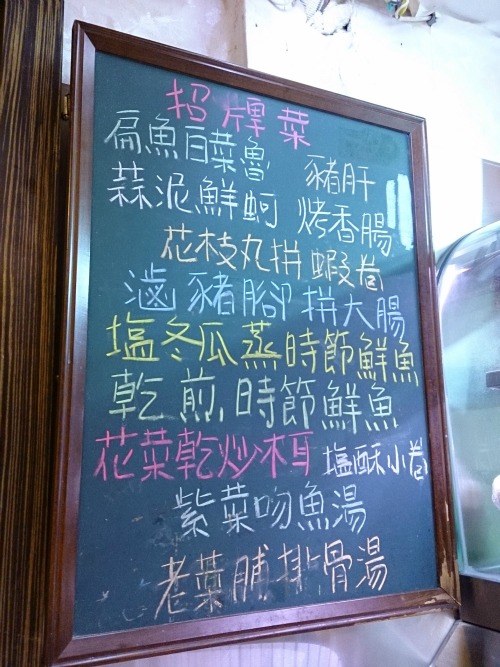 招牌菜
扁魚白菜魯 豬肝
蒜泥鮮蚵 烤香腸
花枝丸拼蝦卷
滷豬腳拼大腸
塩冬瓜蒸時節鮮魚
乾煎時節鮮魚
花菜乾炒木耳 塩酥小卷
紫菜吻魚湯
老菜脯排骨湯